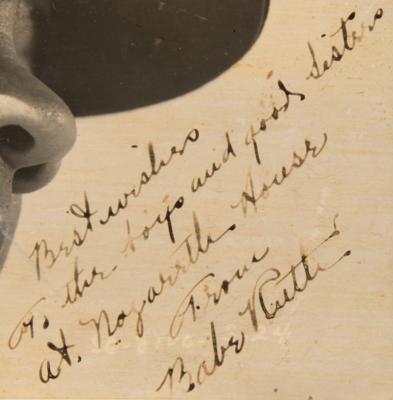 Best wishes
To the boys and good Sisters
at. Nazareth House
From
Babe Ruth